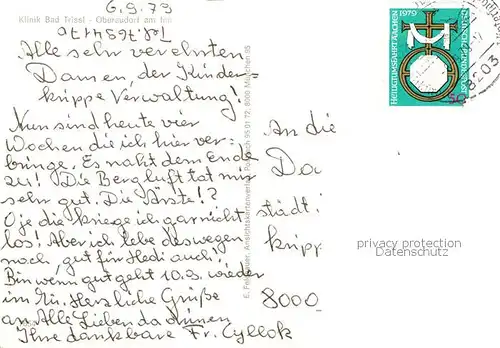 6.9.79
Klinik Bad Trissl - Oberaudorf am Inn
Alle sehr verehrten
Damen, der Kinder-
krippe Verwaltung!
Nun sind heute vier
Wochen die ich hier ver-
bringe. Es naht dem Ende
zu! Die Bergluft tat mir
sehr gut. Die
Oje die kriege ich gar nicht
los! Aber ich lebe deswegen
noch, gut für Hedi auch!!
Bin wenn gut geht 10.9. wieder
im Mü. Herzliche Grüße
an Alle Lieben da drinnen
Ihre dankbare Fr. Cyllok
Ansichtskartenverlag, Postfach 95 01 72, 8000 München 95
An die
Da
städt.
kripp
8000
HEILIGTUMSFAHRT AACHEN
1979
DEUTSCHE BUNDESPOST
50
8203
privacy protection
Datenschutz